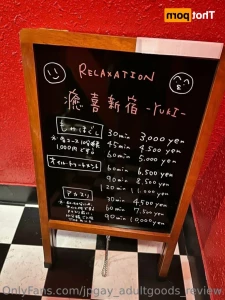 Thot pom
RELAXATION
癒喜新宿 -YUKI-
もみほぐし
30min 3,000yen
45min 4,500yen
60min 5,000yen
オイルトリートメント
60min 6,500yen
90min 8,500yen
120min 11,000yen
アカスリ
30min 4,500yen
60min 7,500yen
90min 10,000yen
OnlyFans.com/jpgay_adultgoods_review